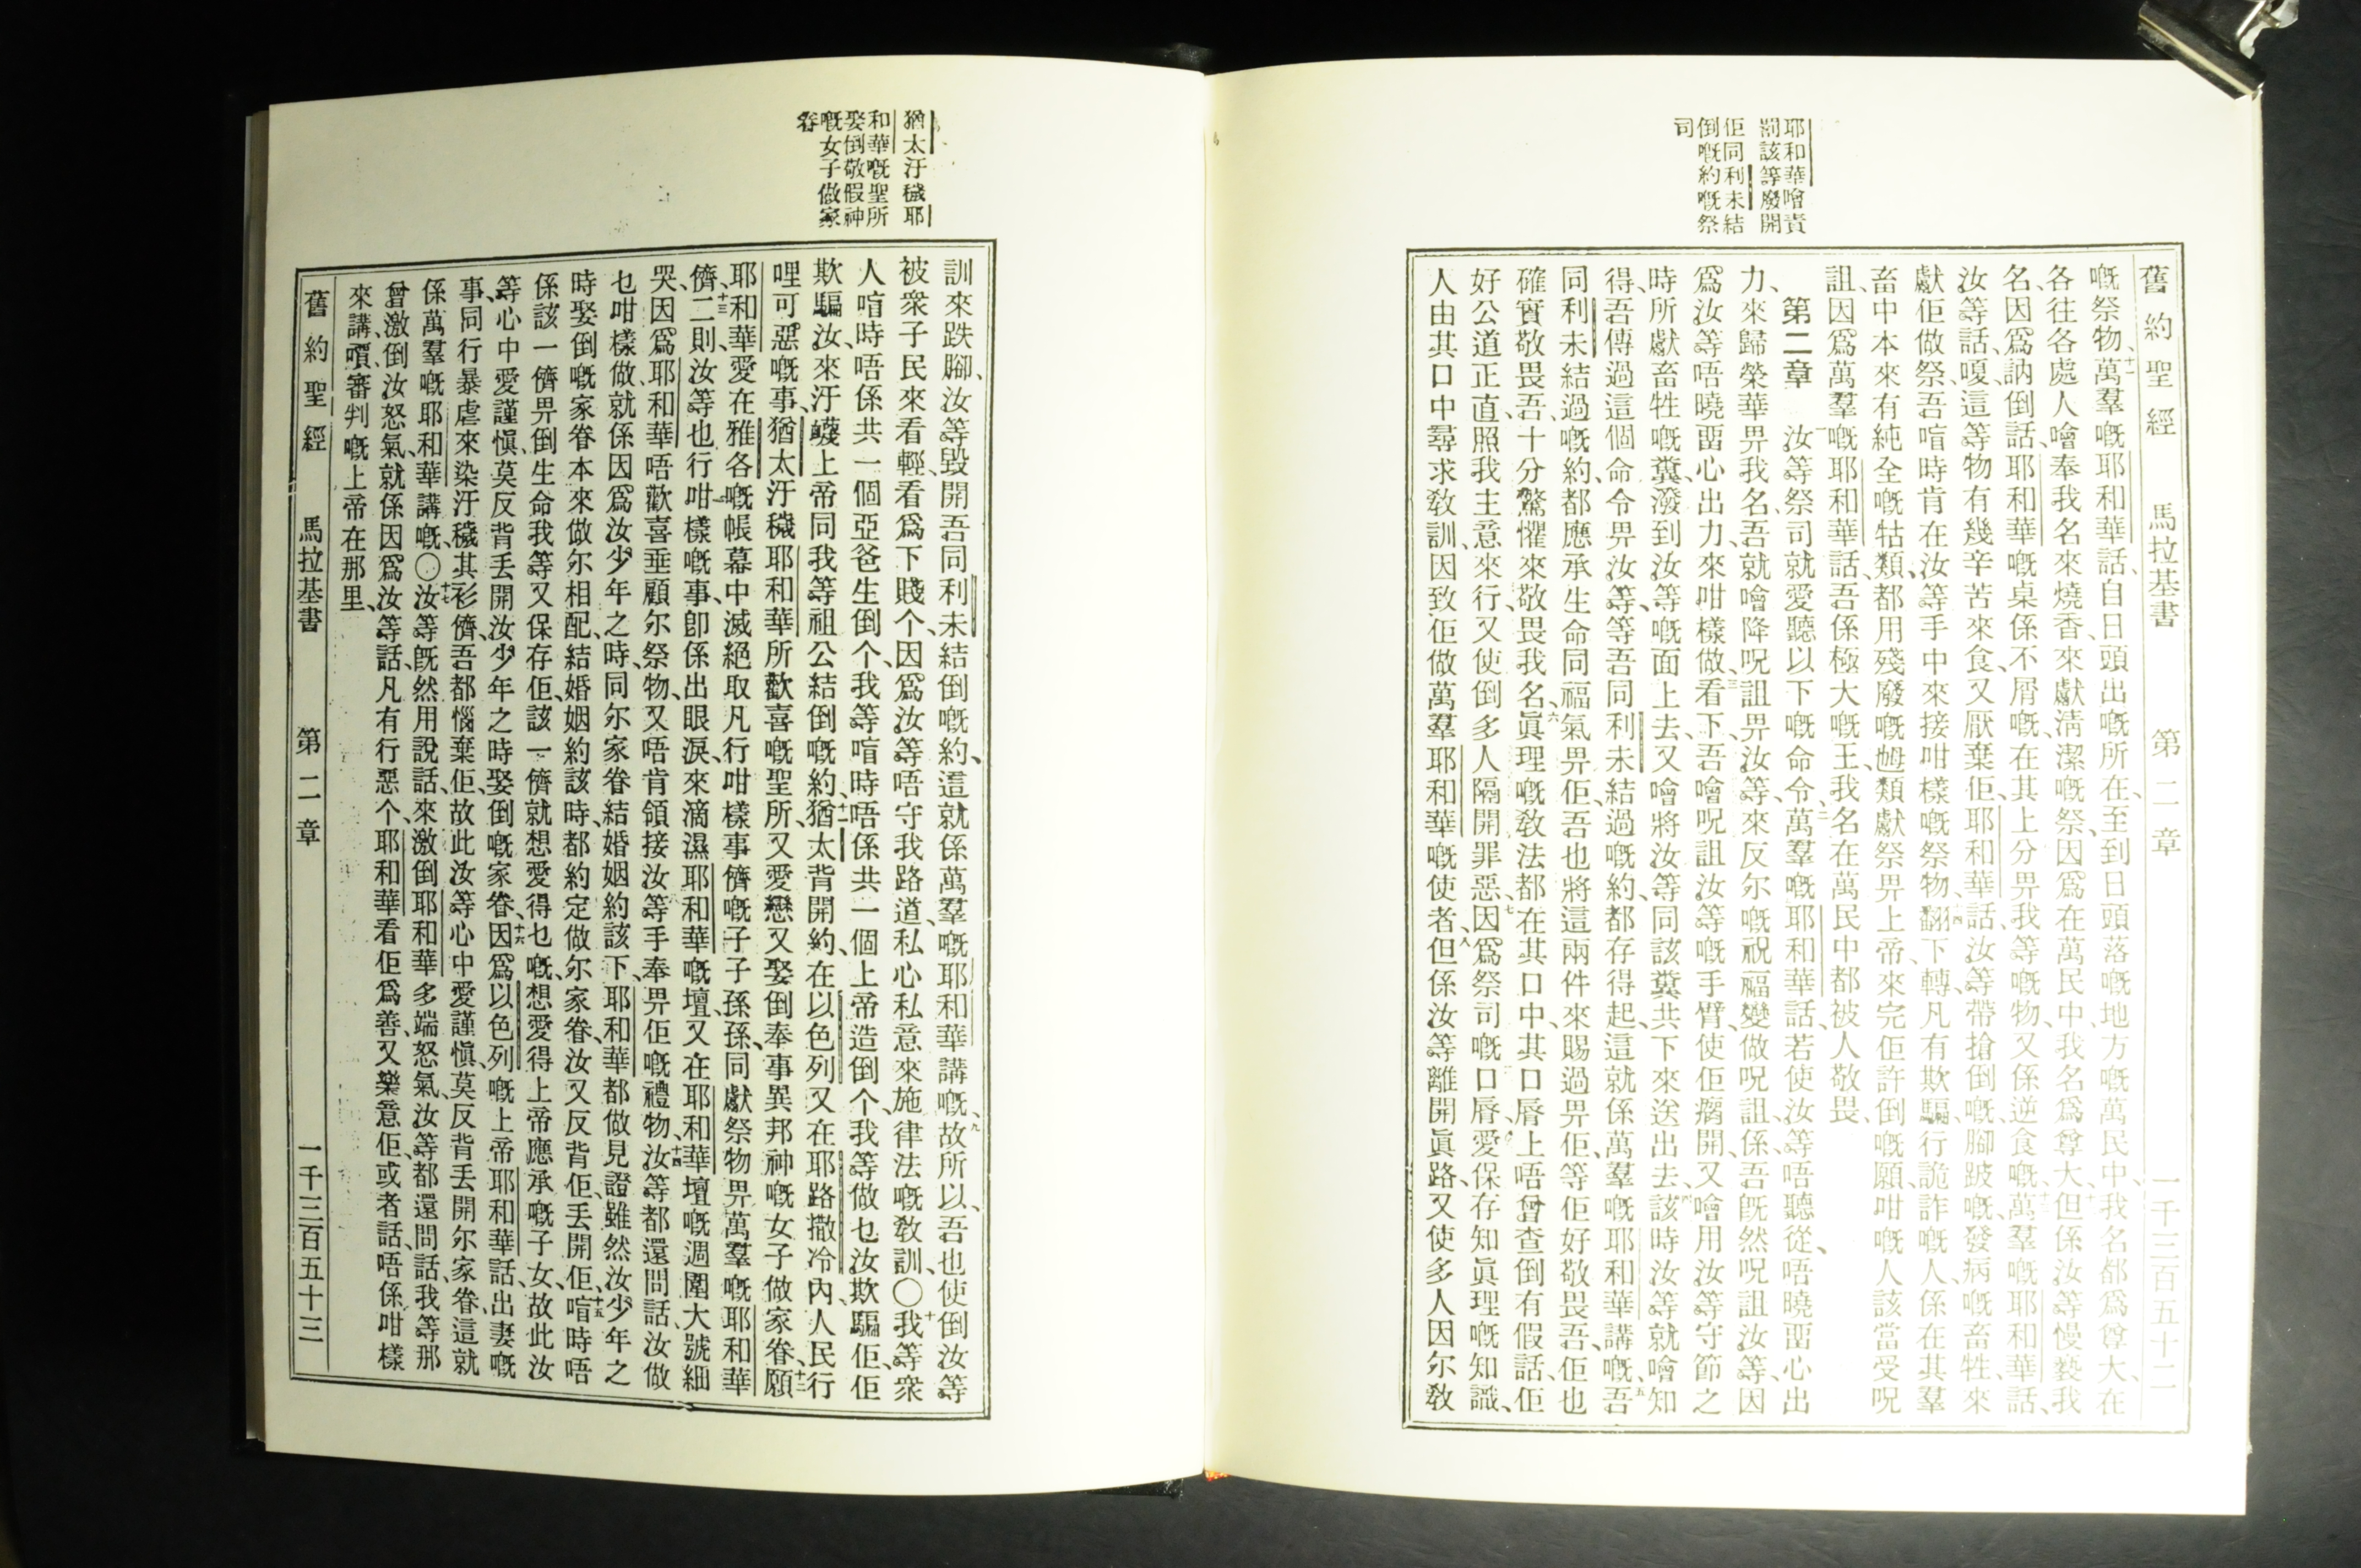 耶和華噲責
罰該等廢開
佢同利未結
倒嘅約嘅祭
司
舊約聖經 馬拉基書 第二章 一千三百五十二
嘅祭物、十一萬羣嘅耶和華話、自日頭出嘅所在、至到日頭落嘅地方嘅萬民中、我名都爲尊大、在
各往各處人噲奉我名來燒香、來獻淸潔嘅祭、因爲在萬民中、我名爲尊大、十二但係汝等慢褻我
名、因爲訥倒話、耶和華嘅桌係不屑嘅、在其上分畀我等嘅物、又係逆食嘅、十三萬羣嘅耶和華話、
汝等話、嗄、這等物有幾辛苦來食、又厭棄佢、耶和華話、汝等帶搶倒嘅、腳跛嘅、發病嘅畜牲、來
獻佢做祭、吾喑時肯在汝等手中來接咁樣嘅祭物、十四翻下轉、凡有欺騙、行詭詐嘅人、係在其羣
畜中本來有純全嘅牯類、都用殘廢嘅乸類獻祭畀上帝、來完佢許倒嘅願、咁嘅人該當受呪
詛、因爲萬羣嘅耶和華話、吾係極大嘅王、我名在萬民中都被人敬畏、
第二章 一汝等祭司就愛聽以下嘅命令、二萬羣嘅耶和華話、若使汝等唔聽從、唔曉畱心出
力、來歸榮華畀我名、吾就噲降呪詛畀汝等、來反尔嘅祝福變做呪詛、係吾旣然呪詛汝等、因
爲汝等唔曉畱心出力來咁樣做、三看下、吾噲呪詛汝等嘅手臂、使佢癘開、又噲用汝等守節之
時所獻畜牲嘅糞、潑到汝等嘅面上去、又噲將汝等同該糞共下來送出去、四該時汝等就噲知
得、吾傳過這個命令畀汝等、等吾同利未結過嘅約、都存得起、這就係萬羣嘅耶和華講嘅、五吾
同利未結過嘅約、都應承生命同福氣畀佢、吾也將這兩件來賜過畀佢、等佢好敬畏吾、佢也
確實敬畏吾、十分驚懼來敬畏我名、六眞理嘅敎法都在其口中、其口唇上唔曾查倒有假話、佢
好公道正直、照我主意來行、又使倒多人隔開罪惡、七因爲祭司嘅口唇、愛保存知眞理嘅知識、
人由其口中尋求敎訓、因致佢做萬羣耶和華嘅使者、八但係汝等離開眞路、又使多人因尔敎
猶太汙穢耶
和華嘅聖所
娶倒敬假神
嘅女子做家
眷
訓來跌腳、汝等毀開吾同利未結倒嘅約、這就係萬羣嘅耶和華講嘅、九故所以、吾也使倒汝等
被衆子民來看輕、看爲下賤个、因爲汝等唔守我路道、私心私意來施律法嘅敎訓、〇十我等衆
人喑時唔係共一個亞爸生倒个、我等喑時唔係共一個上帝造倒个、我等做乜汝欺騙佢、佢
欺騙汝、來汙衊上帝同我等祖公結倒嘅約、十一猶太背開約、在以色列又在耶路撒冷內、人民行
哩可惡嘅事、猶太汙穢耶和華所歡喜嘅聖所、又愛戀又娶倒奉事異邦神嘅女子做家眷、十二願
耶和華愛在雅各嘅帳幕中滅絕取凡行咁樣事儕嘅子子孫孫、同獻祭物畀萬羣嘅耶和華
儕、十三二則、汝等也行咁樣嘅事、卽係出眼淚、來滴濕耶和華嘅壇、又在耶和華壇嘅週圍大號細
哭、因爲耶和華唔歡喜垂顧尔祭物、又唔肯領接汝等手奉畀佢嘅禮物、十四汝等都還問話、汝做
乜咁樣做、就係因爲汝少年之時、同尔家眷結婚姻約該下、耶和華都做見證、雖然汝少年之
時娶倒嘅家眷本來做尔相配、結婚姻約該時、都約定做尔家眷、汝又反背佢、丟開佢、十五喑時唔
係該一儕畀倒生命我等、又保存佢、該一儕就想愛得乜嘅、想愛得上帝應承嘅子女、故此汝
等心中愛謹愼、莫反背丟開汝少年之時娶倒嘅家眷、十六因爲以色列嘅上帝耶和華話、出妻嘅
事、同行暴虐來染汙穢其衫儕、吾都惱棄佢、故此汝等心中愛謹愼、莫反背丟開尔家眷、這就
係萬羣嘅耶和華講嘅、〇十七汝等旣然用說話、來激倒耶和華多端怒氣、汝等都還問話、我等那
曾激倒汝怒氣、就係因爲汝等話、凡有行惡个、耶和華看佢爲善、又樂意佢、或者話、唔係咁樣
來講、嘪審判嘅上帝在那里、
舊約聖經 馬拉基書 第二章 一千三百五十三